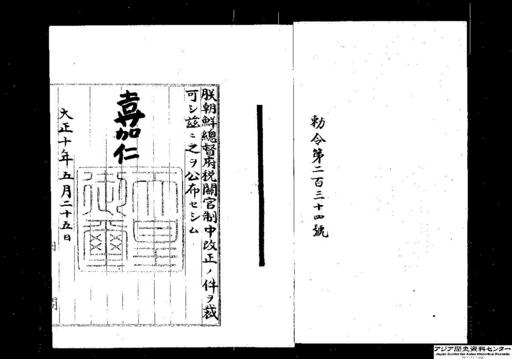 勅令第二百三十四號
朕朝鮮總督府税關官制中改正ノ件ヲ裁
可シ茲ニ之ヲ公布セシム
嘉仁
天皇
御璽
大正十年五月二十五日
アジア歴史資料センター
Japan Center for Asian Historical Records